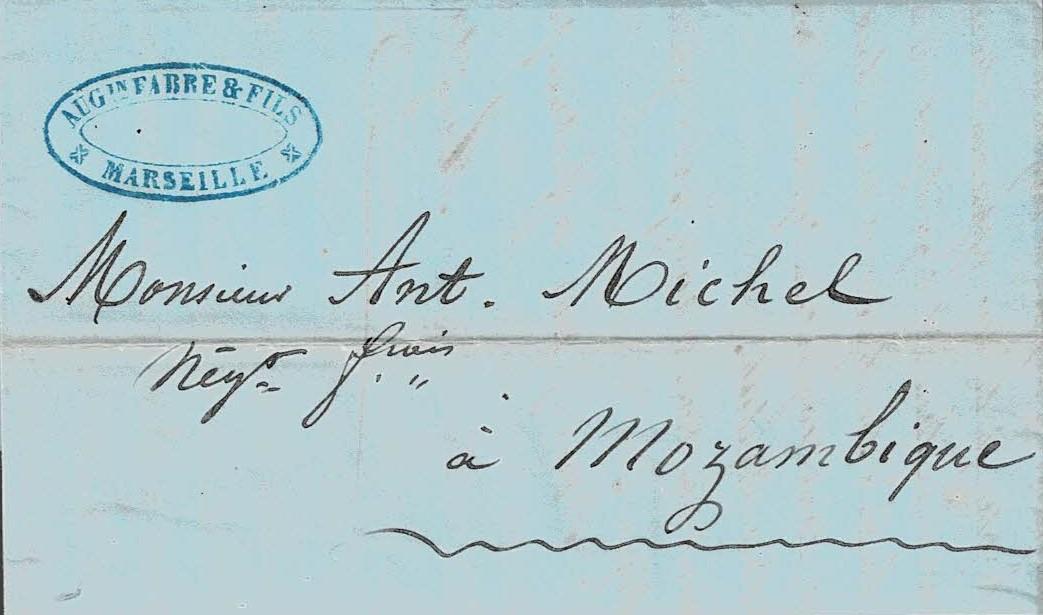 AUGIN FABRE & FILS
MARSEILLE
Monsieur Ant. Michel
Négt. frçais
à Mozambique